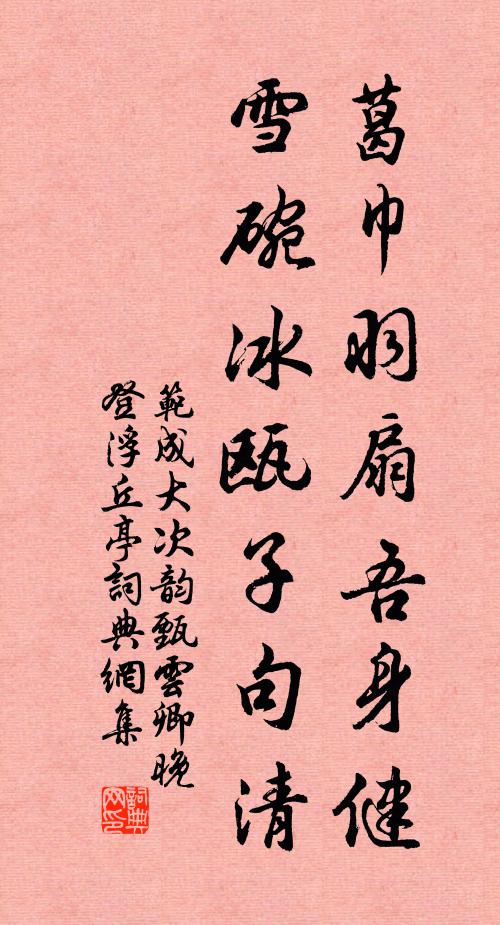 葛巾羽扇吾身健
雪碗冰甌子句清
範成大次韵甄雲卿晚
登浮丘亭詞典網集
詞典
网印